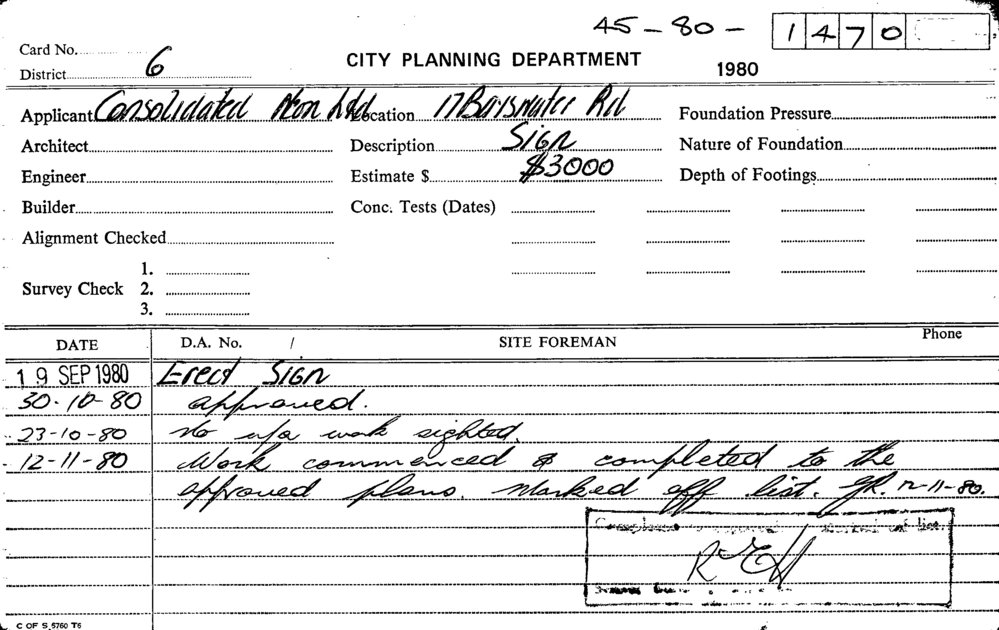 45-80- 1470
Card No.
District 6
CITY PLANNING DEPARTMENT
1980
Applicant Consolidated Neon Ltd Location 17 Bayswater Rd Foundation Pressure
Architect Description Sign Nature of Foundation
Engineer Estimate $ $3000 Depth of Footings
Builder Conc. Tests (Dates)
Alignment Checked
1.
Survey Check 2.
3.
DATE D.A. No. / SITE FOREMAN Phone
19 SEP 1980 Erect Sign
30-10-80 approved.
23-10-80 No u/a work sighted.
12-11-80 Work commenced & completed to the
approved plans. Marked off list. 12-11-80.
C OF S 5760 T6